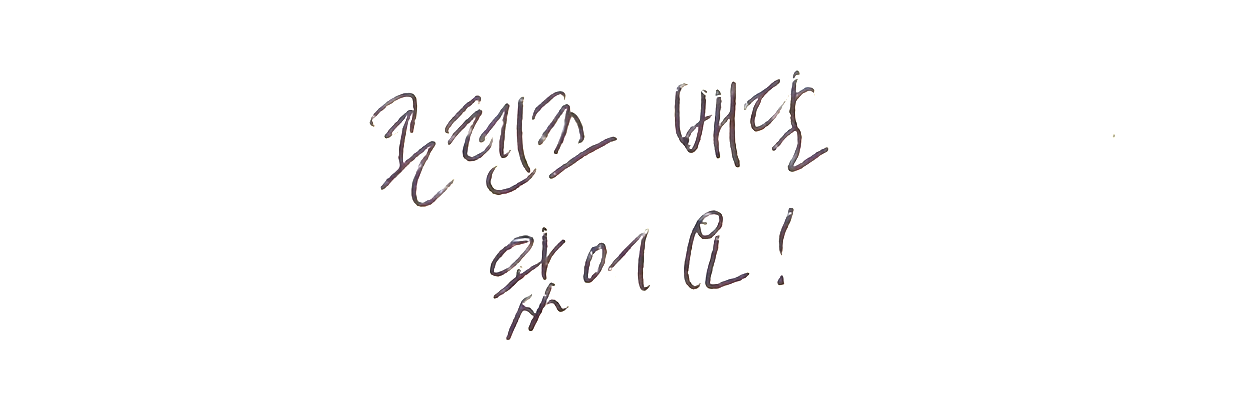 콘텐츠 배달
왔어요!